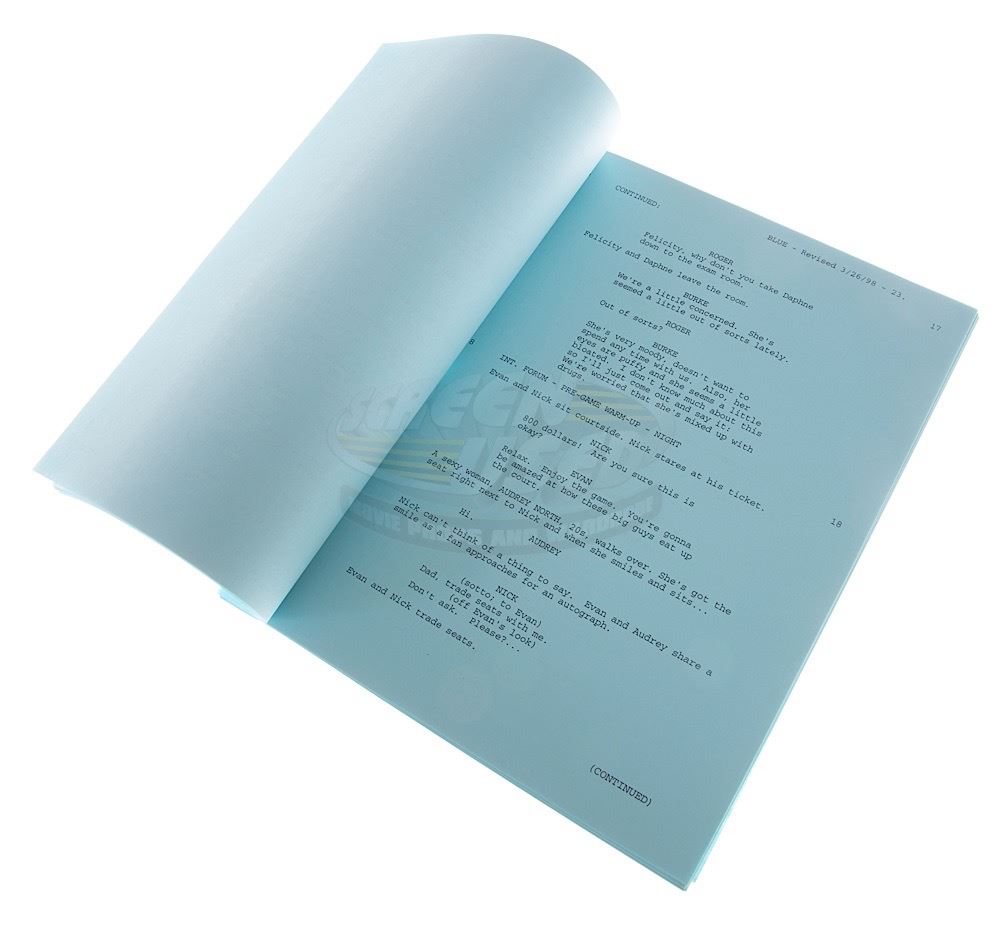 BLUE - Revised 3/26/98 - 23.
CONTINUED:
17
ROGER
Felicity, why don't you take Daphne
down to the exam room.
Felicity and Daphne leave the room.
BURKE
We're a little concerned. She's
seemed a little out of sorts lately.
ROGER
Out of sorts?
BURKE
She's very moody, doesn't want to
spend any time with us. Also, her
eyes are puffy and she seems a little
bloated. I don't know much about this
so I'll just come out and say it:
We're worried that she's mixed up with
drugs.
8
INT. FORUM - PRE-GAME WARM-UP - NIGHT
18
Evan and Nick sit courtside. Nick stares at his ticket.
NICK
800 dollars! Are you sure this is
okay?
EVAN
Relax. Enjoy the game. You're gonna
be amazed at how these big guys eat up
the court.
A sexy woman, AUDREY NORTH, 20s, walks over. She's got the
seat right next to Nick and when she smiles and sits...
AUDREY
Hi.
Nick can't think of a thing to say. Evan and Audrey share a
smile as a fan approaches for an autograph.
NICK
(sotto; to Evan)
Dad, trade seats with me.
(off Evan's look)
Don't ask. Please?...
Evan and Nick trade seats.
(CONTINUED)
SCREEN
USED
MOVIE PROPS AND WARDROBE